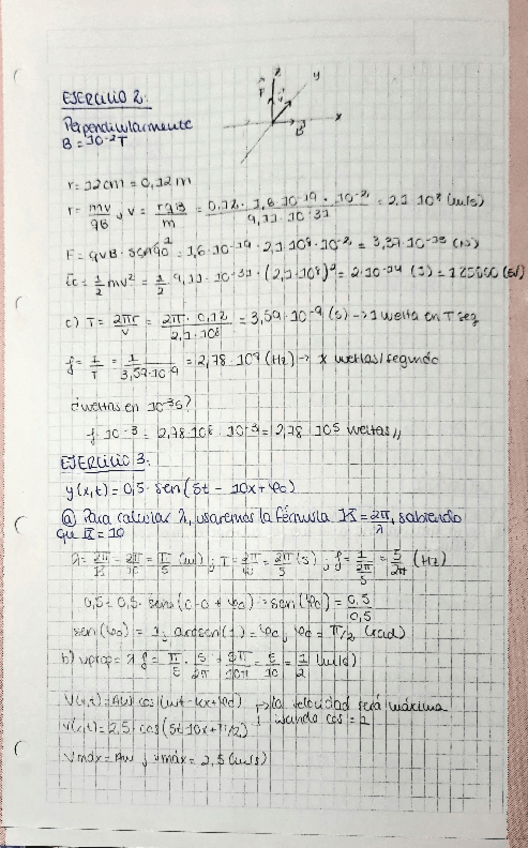 EJERCICIO 2:
Perpendicularmente
B = 10⁻² T
z
y
F
v
x
B
r = 12 cm = 0,12 m
r = mv/qB ; v = rqB/m = 0,12 · 1,6 · 10⁻¹⁹ · 10⁻²/9,11 · 10⁻³¹ = 2,1 · 10⁸ (m/s)
F = qvB · sen90 = 1,6 · 10⁻¹⁹ · 2,1 · 10⁸ · 10⁻² = 3,37 · 10⁻¹³ (N)
Ec = 1/2 mv² = 1/2 · 9,11 · 10⁻³¹ · (2,1 · 10⁸)² = 2 · 10⁻¹⁴ (J) = 125000 (eV)
c) T = 2πr/v = 2π · 0,12/2,1 · 10⁸ = 3,59 · 10⁻⁹ (s) → 1 vuelta en T seg
f = 1/T = 1/3,59 · 10⁻⁹ = 2,78 · 10⁸ (Hz) → x vueltas/segundo
¿vueltas en 10⁻³s?
f · 10⁻³ = 2,78 · 10⁸ · 10⁻³ = 2,78 · 10⁵ vueltas //
EJERCICIO 3:
y(x,t) = 0,5 · sen(5t - 10x + φ₀)
ⓐ Para calcular λ, usaremos la fórmula K = 2π/λ, sabiendo
que K = 10
λ = 2π/K = 2π/10 = π/5 (m) ; T = 2π/ω = 2π/5 (s) ; f = 1/(2π/5) = 5/2π (Hz)
0,5 = 0,5 · sen(0 - 0 + φ₀) → sen(φ₀) = 0,5/0,5
sen(φ₀) = 1 ; arcsen(1) = φ₀ ; φ₀ = π/2 (rad)
b) vprop = λ · f = π/5 · 5/2π = 5π/10π = 5/10 = 1/2 (m/s)
v(x,t) = Aω cos(ωt - kx + φ₀) → la velocidad será máxima
v(x,t) = 2,5 · cos(5t - 10x + π/2) cuando cos = 1
Vmáx = Aω ; vmáx = 2,5 (m/s)